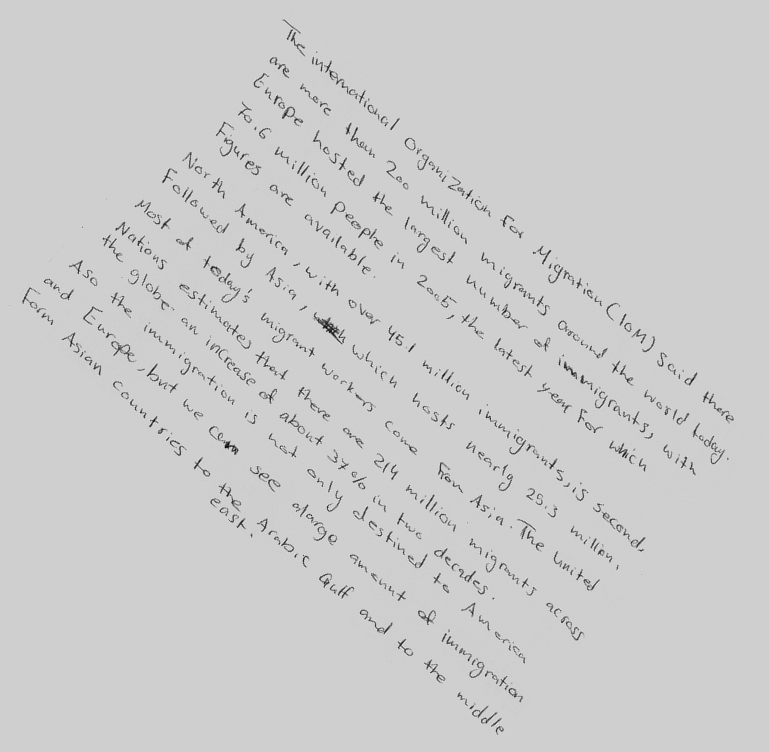 The international Organization For Migration (IOM) said there
are more than 200 million migrants around the world today.
Europe hosted the largest number of immigrants, with
70.6 million people in 2005, the latest year For which
Figures are available.
North America, with over 45.1 million immigrants, is second,
Followed by Asia, which hosts nearly 25.3 million.
Most of today's migrant workers come From Asia. The United
Nations estimates that there are 214 million migrants across
the globe an increase of about 37% in two decades.
Aso the immigration is not only destined to America
and Europe, but we can see alarge amount of immigration
Form Asian countries to the Arabic Gulf and to the middle
east.